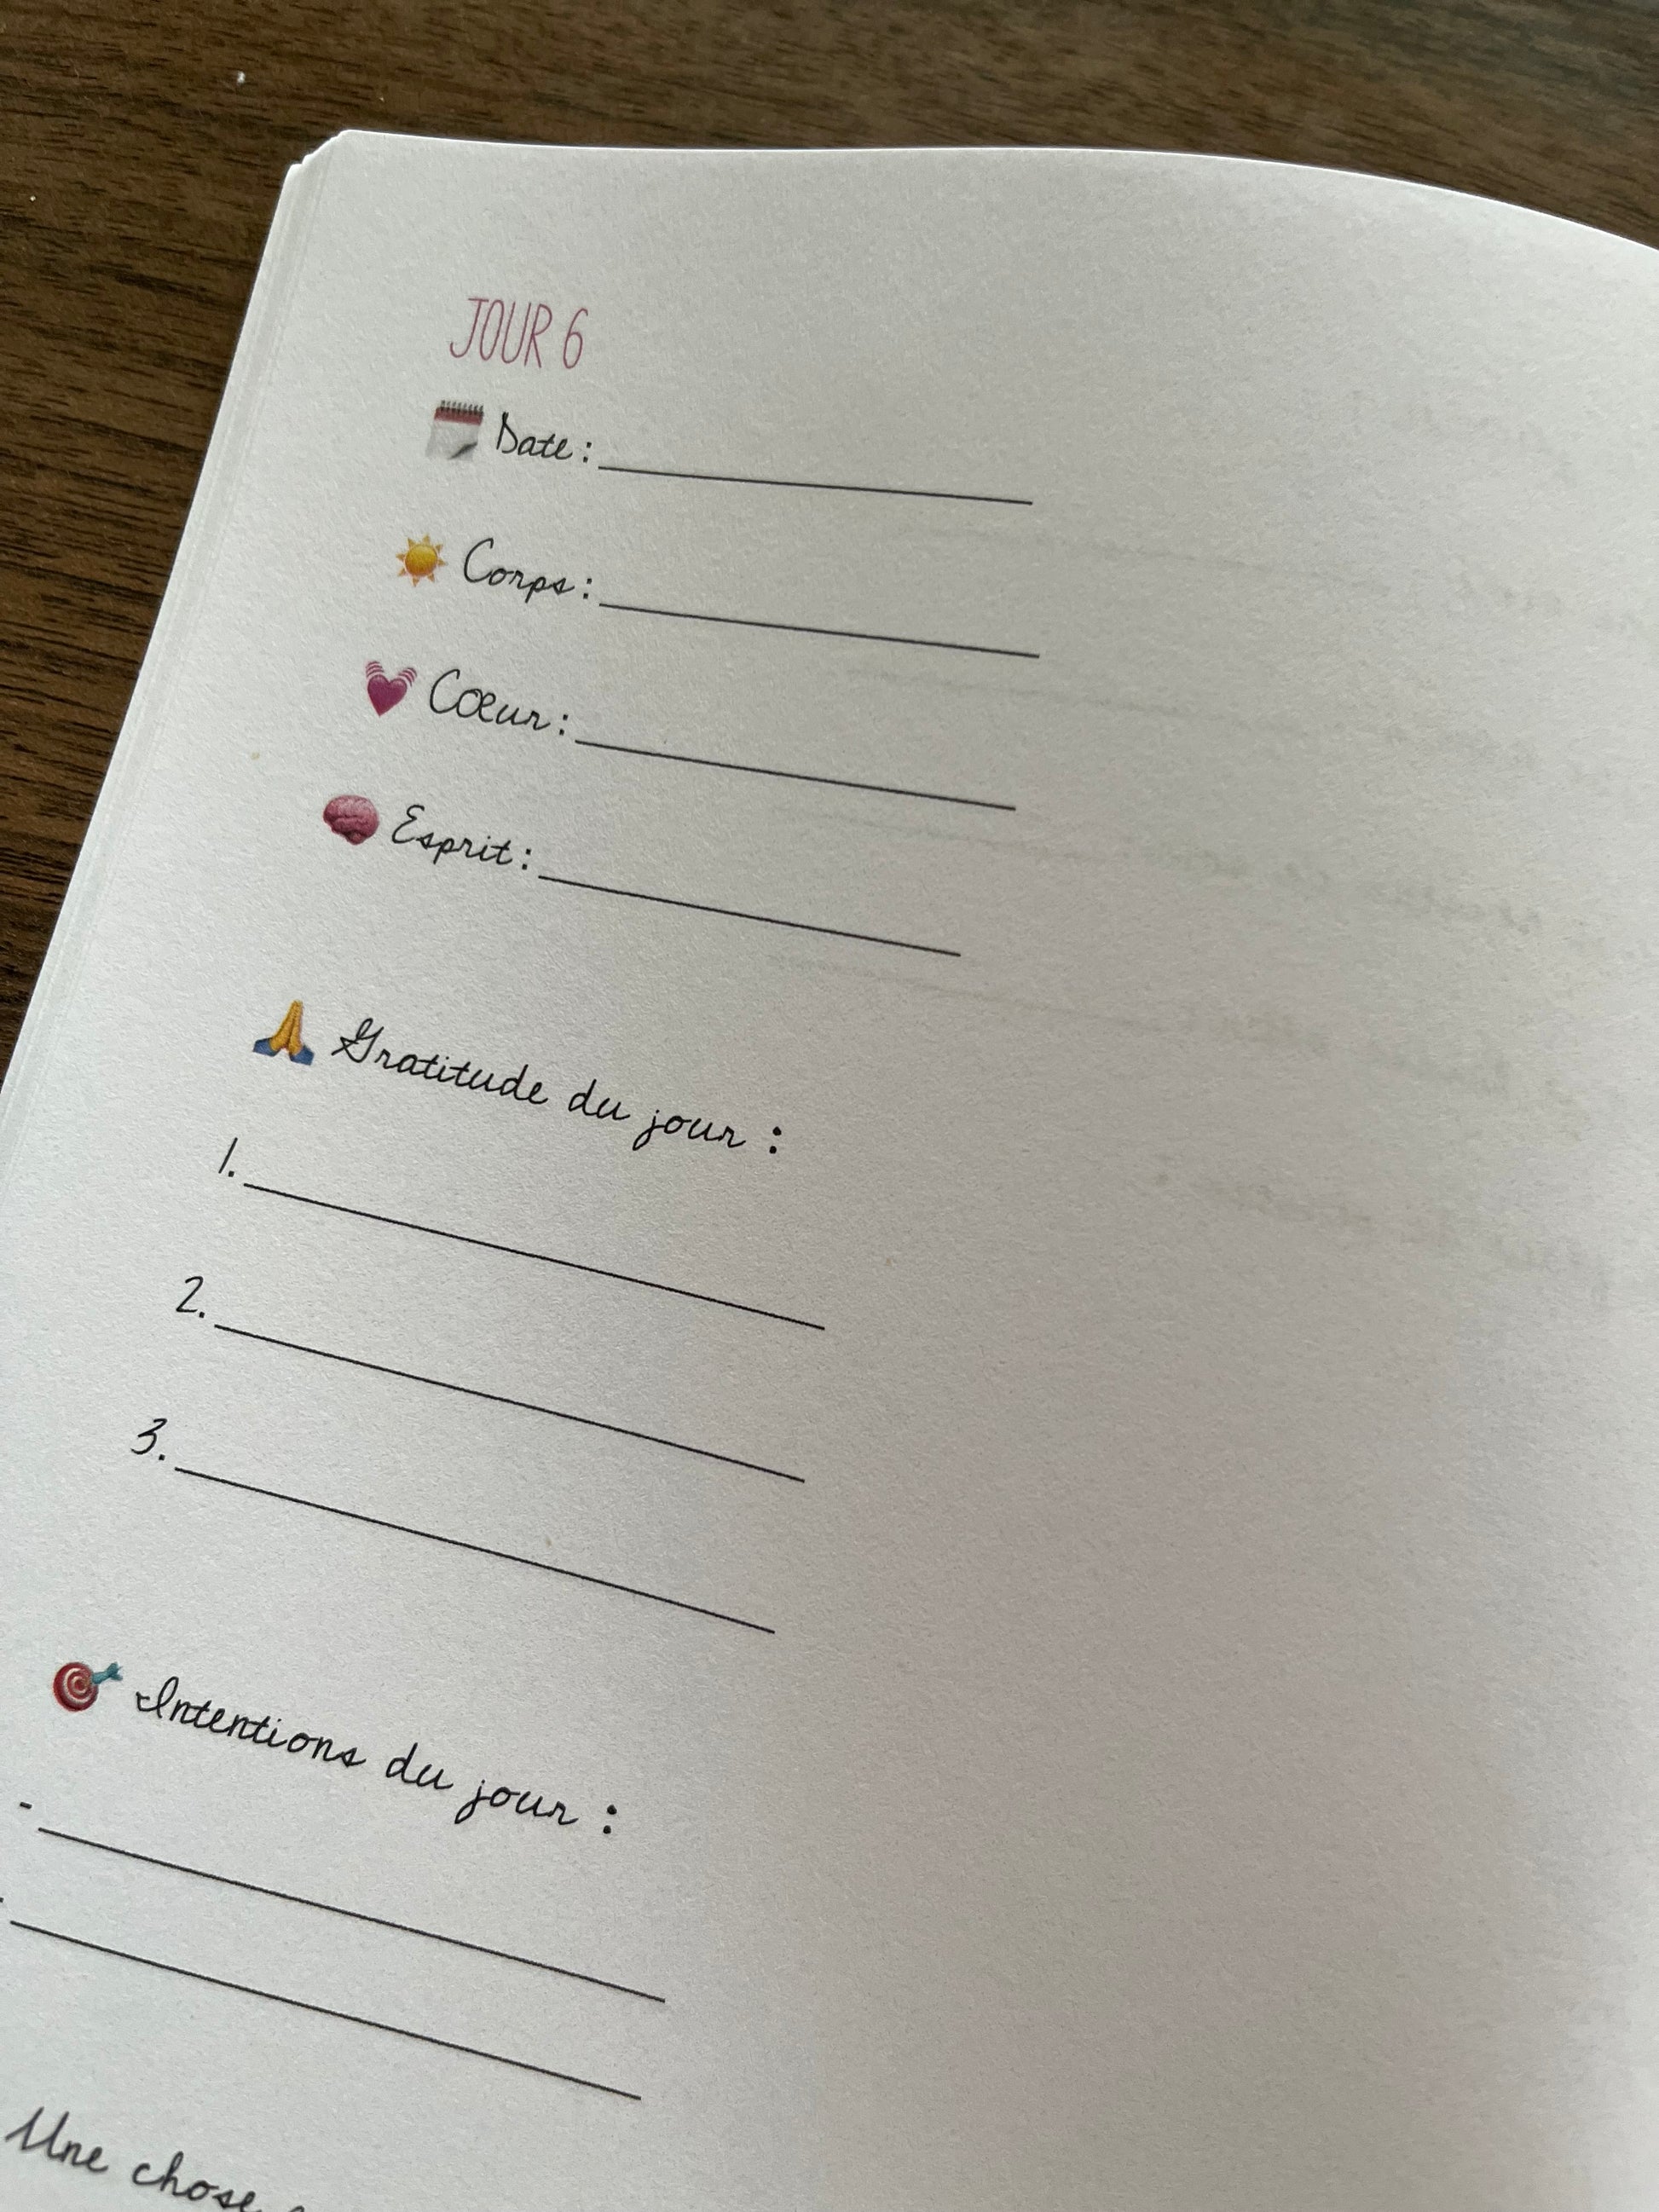 JOUR 6
Date :
Corps :
Cœur :
Esprit :
Gratitude du jour :
1.
2.
3.
Intentions du jour :
-
Une chose